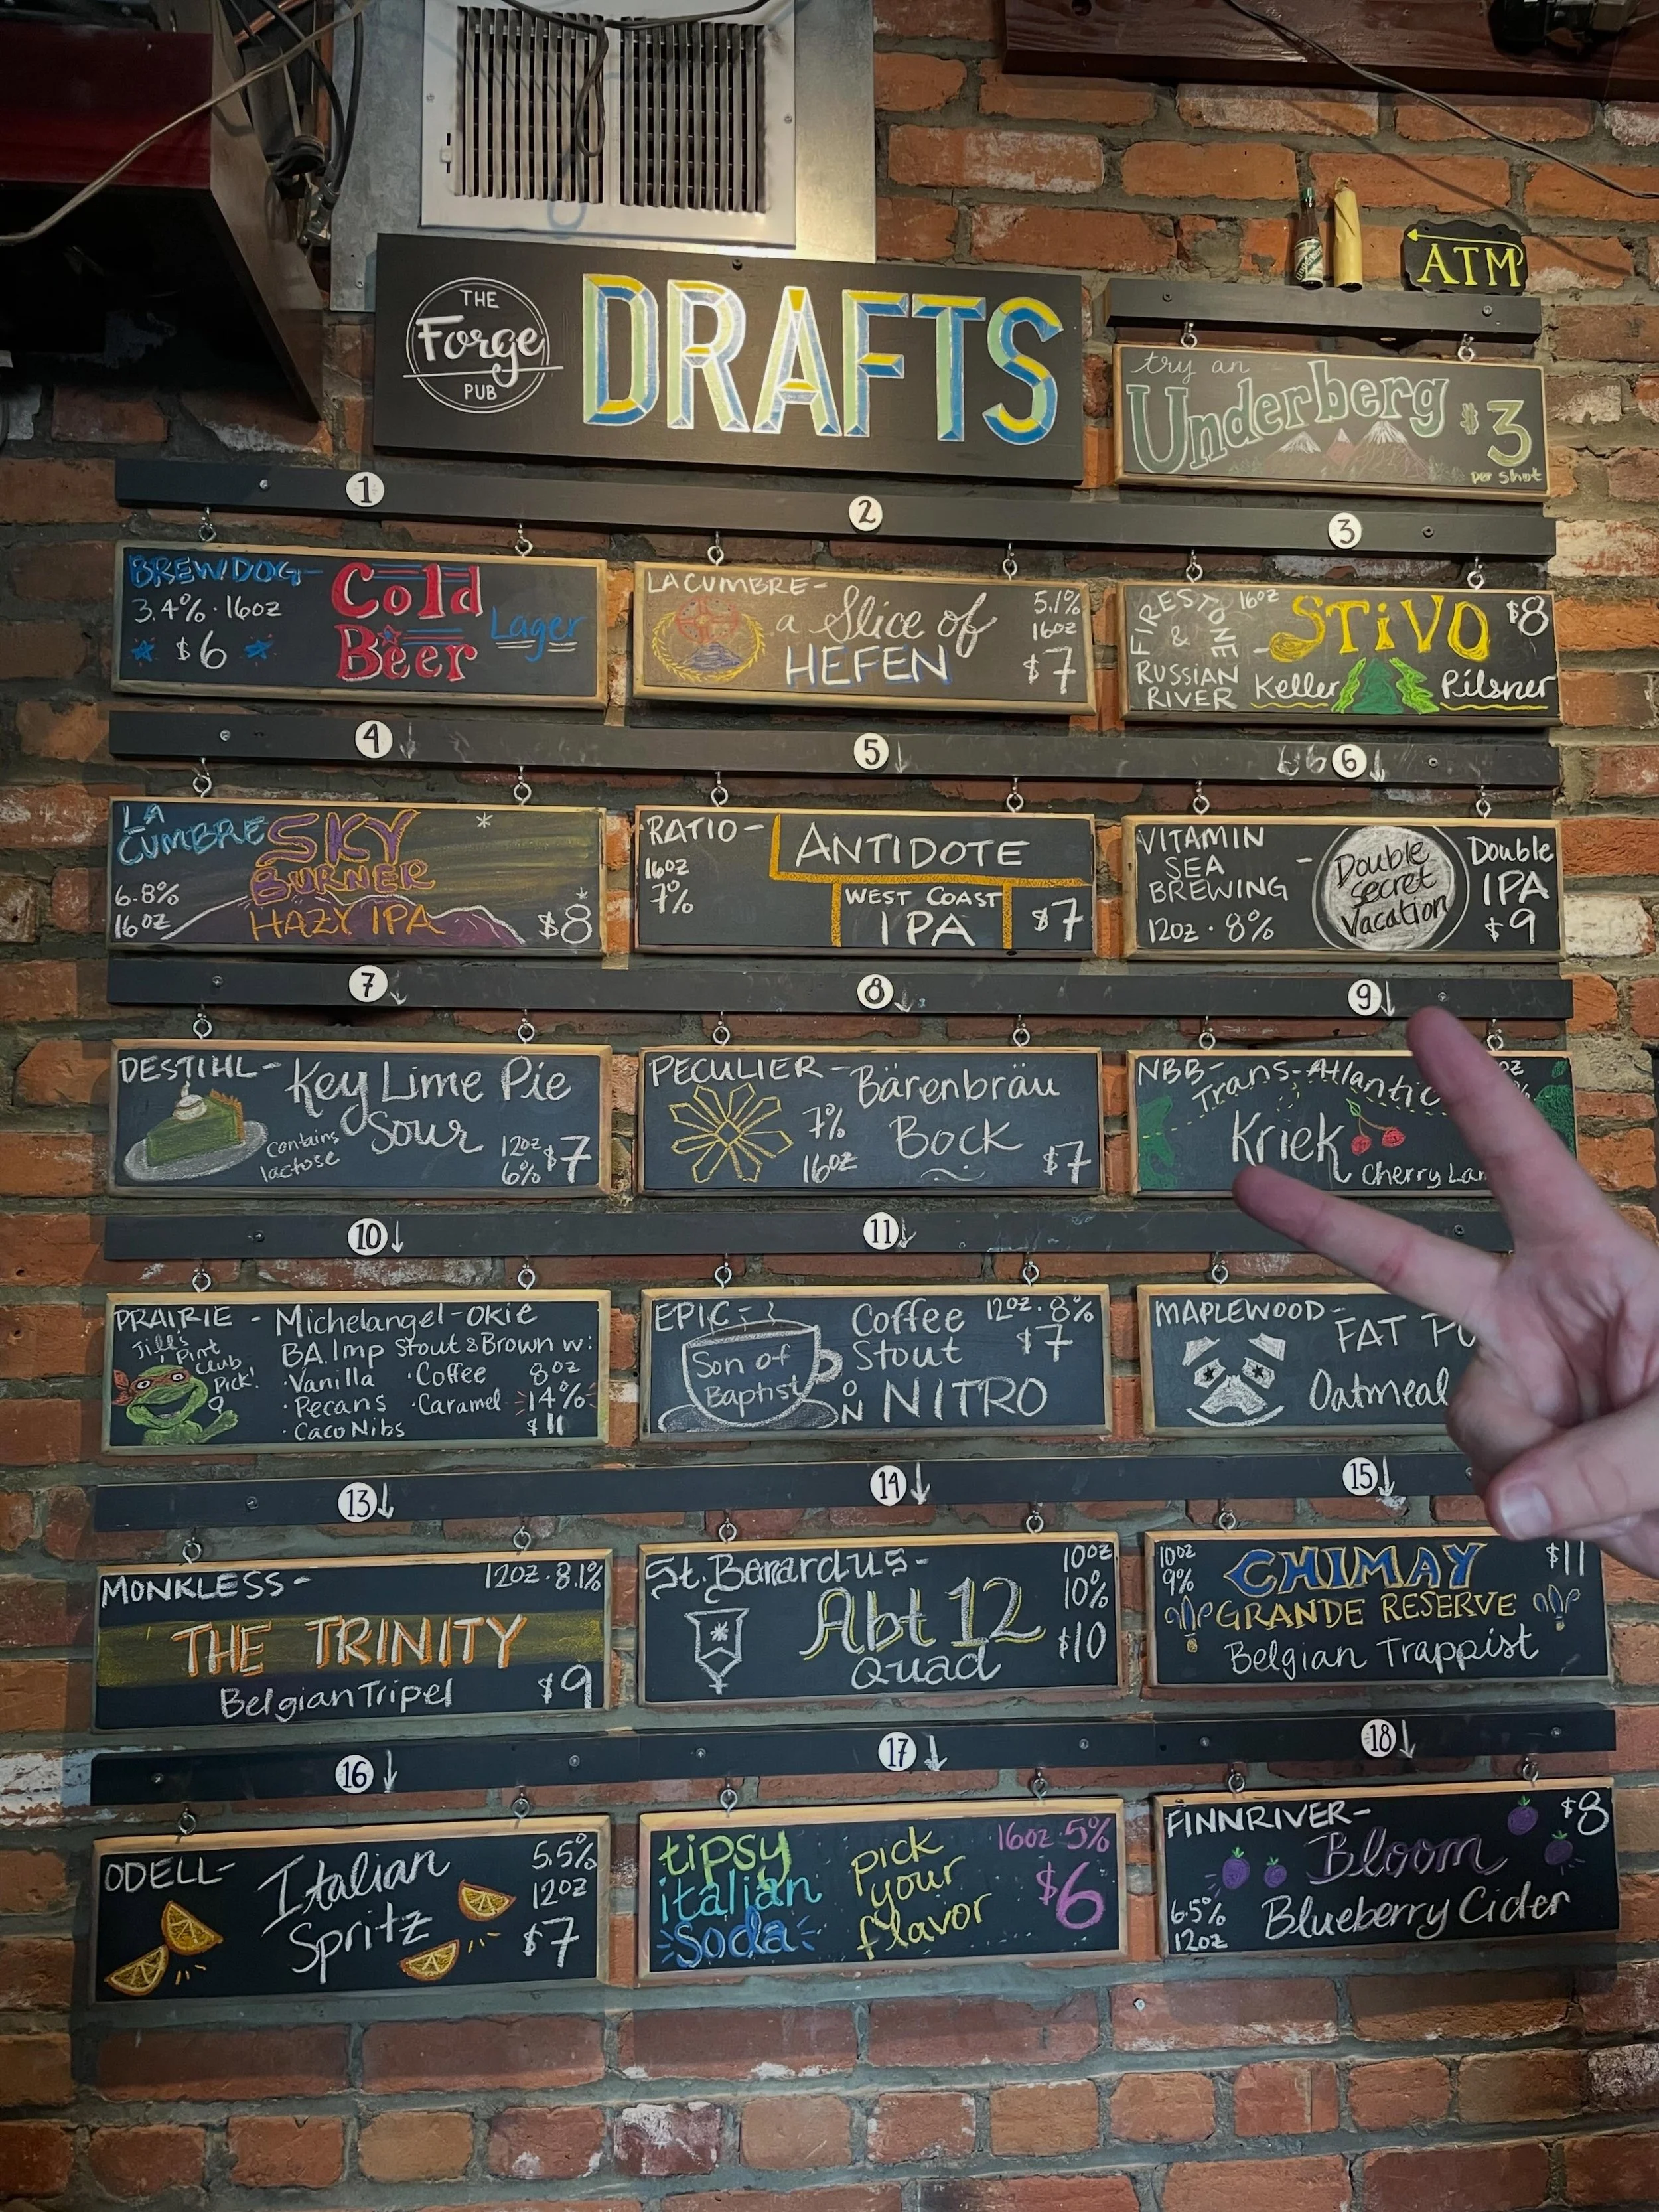 THE
Forge
PUB
DRAFTS
ATM
try an
Underberg
$3
per shot
1
2
3
BREWDOG-
3.4% · 16oz
$6
Cold
Beer
Lager
LA CUMBRE-
a Slice of
HEFEN
5.1%
16oz
$7
FIRESTONE
&
RUSSIAN
RIVER
16oz
- STiVO
$8
Keller Pilsner
4
5
6
LA
CUMBRE
SKY
BURNER
HAZY IPA
6.8%
16oz
$8
RATIO-
16oz
7%
ANTIDOTE
WEST COAST
IPA
$7
VITAMIN
SEA
BREWING
12oz · 8%
-
Double
Secret
Vacation
Double
IPA
$9
7
8
9
DESTIHL-
Key Lime Pie
Sour
contains
lactose
12oz
6%
$7
PECULIER-
Bärenbräu
Bock
7%
16oz
$7
NBB-
Trans-Atlantic
Kriek
Cherry
oz
%
10
11
PRAIRIE -
Jill's
Pint
Club
Pick!
Michelangel-okie
BA. Imp Stout & Brown w:
· Vanilla · Coffee
· Pecans · Caramel
· Caco Nibs
8oz
14%
$11
EPIC-
Son of
Baptist
Coffee
Stout
ON NITRO
12oz · 8%
$7
MAPLEWOOD-
FAT
Oatmeal
13
14
15
MONKLESS-
12oz · 8.1%
THE TRINITY
Belgian Tripel
$9
St. Bernardus-
Abt 12
Quad
10oz
10%
$10
10oz
9%
CHIMAY
$11
GRANDE RESERVE
Belgian Trappist
16
17
18
ODELL-
Italian
Spritz
5.5%
12oz
$7
tipsy
italian
Soda
pick
your
flavor
16oz · 5%
$6
FINNRIVER-
$8
Bloom
Blueberry Cider
6.5%
12oz